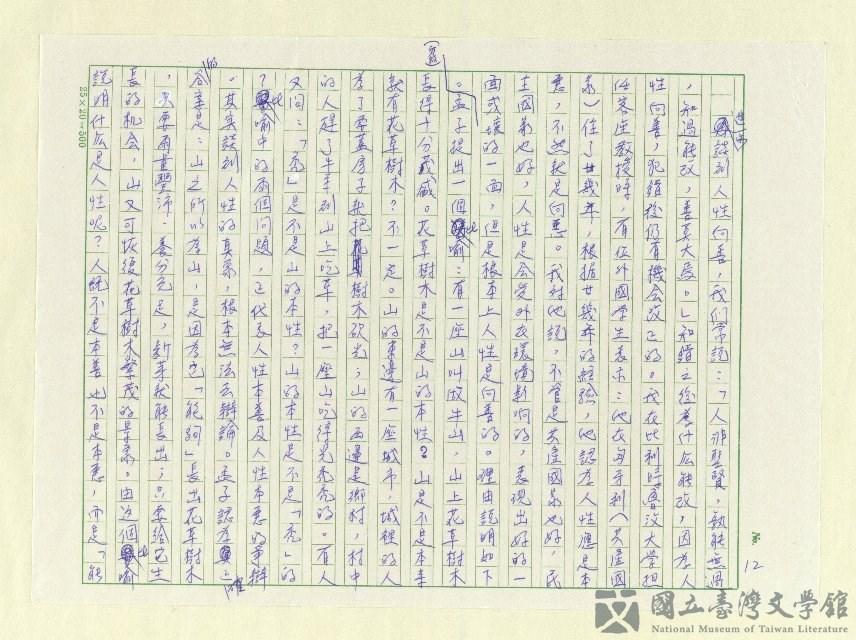 進而談到人性向善，我們常說：「人非聖賢，孰能無過
，知過能改，善莫大焉。」知錯之後為什麼能改，因為人
性向善，犯錯後仍有機會改正的。我在比利時魯汶大學担
任客座教授時，有位外國學生表示：他在匈牙利（共產國
家）住了廿幾年，根据廿幾年的經驗，他認為人性應是本
惡，不然就是向惡。我對他說，不管是共產國家也好，民
主國家也好，人性是会受外在環境影响的，表現出好的一
面或壞的一面，但是根本上人性是向善的。理由説明如下
。孟子提出一個比喻：有一座山叫做牛山，山上花草樹木
長得十分茂盛。花草樹木是不是山的本性？山是不是本來
就有花草樹木？不一定。山的東邊有一座城市，城裡的人
為了要蓋房子就把樹木砍光；山的西邊是鄉村，村中
的人趕了牛羊到山上吃草，把一座山吃得光秃秃的。有人
又问：「秃」是不是山的本性？山的本性是不是「秃」的
？比喻中的兩個问題，正代表人性本善及人性本惡的爭辯
。其實談到人性的真象，根本無法去辯論。孟子認為唯一的
答案是：山之所以為山，是因為它「能夠」長出花草樹木
，只要雨量豐沛、養分充足，新芽就能長出；只要給它生
長的机会，山又可恢復花草樹木繁茂的景象。由這個比喻
説明什么是人性呢？人既不是本善也不是本惡，而是「能
(邊)
25×20=500
No. 12
國立臺灣文學館
National Museum of Taiwan Literature